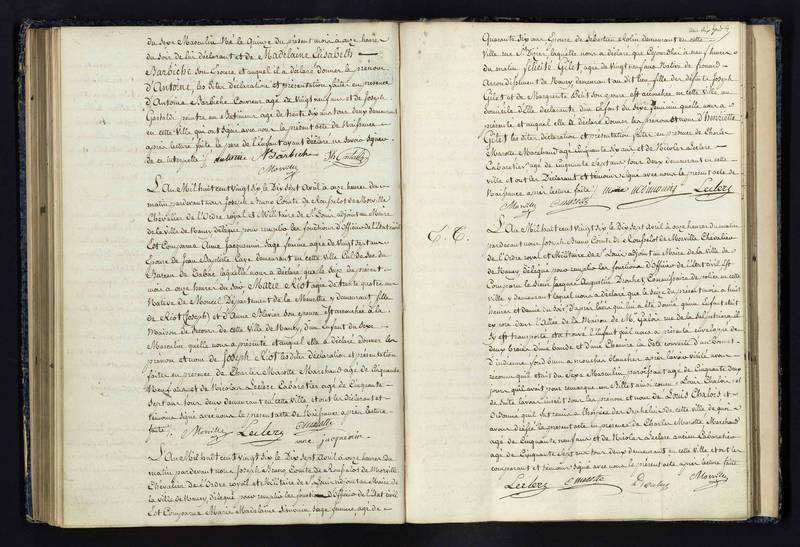 du sexe Masculin Né le Quinze du présent mois à onze heures
du soir de lui déclarant et de Madelaine Elisabeth
Barbiche son Epouse et auquel il a déclaré donner le prénom
d'Antoine, les dites Déclaration et présentation faites en présence
d'Antoine Barbiche Couvreur agé de Vingt neuf ans et de Joseph
peintre en Batimens agé de trente six ans tous deux demeurant
en cette Ville, qui ont signé avec nous le présent acte de Naissance
après lecture faite le père de l'Enfant ayant déclaré ne savoir signer
de ce interpellé /. Antoine Barbiche
Morville
L'An Mil huit cent Vingt Six le Dix Sept Avril à onze heures du
matin pardevant nous Joseph Bruno Comte de Rouffelot de Morville
Chevalier de l'Ordre royal et Militaire de St Louis adjoint au Maire
de la Ville de Nancy délégué pour remplir les fonctions d'Officier de l'état civil
Est Comparue Anne Jacquemin Sage femme agée de Vingt sept ans
Epouse de Jean Baptiste Caye demeurant en cette Ville Cul de Sac du
Bureau de Tabac, laquelle nous a déclaré que le Seize du présent
mois à onze heures du soir Marie Riot agée de trente quatre ans
Native de Moncel Département de la Meurthe y demeurant fille
de Riot (Joseph) et d'Anne son épouse est accouchée à la
Maison de Secours de cette Ville de Nancy, d'un Enfant du Sexe
Masculin quelle nous a présenté et auquel elle a déclaré donner les
prénom et nom de Joseph Riot les dites déclaration et présentation
faites en présence de Charles Marotte Marchand agé de Cinquante
Neuf ans et de Nicolas Leclere Cabaretier agé de Cinquante
Sept ans tous deux demeurant en cette Ville et ont les déclarant et
témoins signé avec nous le présent acte de Naissance après lecture
faite /. Morville Leclerc Cmarotte
anne jacquemin
L'An Mil huit cent Vingt Six le Dix Sept Avril à onze heures du
matin pardevant nous Joseph Bruno Comte de Rouffelot de Morville
Chevalier de l'Ordre royal et Militaire de St Louis adjoint au Maire de
la Ville de Nancy délégué pour remplir les fonctions d'Officier de l'état civil
Est Comparue Marie Madelaine Simonin, Sage femme, agée de
Quarante six ans Epouse de Sébastien Kolin demeurant en cette
Ville rue St Dizier, laquelle nous a déclaré que Cejourd'hui à neuf heures
du matin Félicité Gilet agée de Vingt neuf ans Native de frouard
Arrondissement de Nancy, demeurant au dit lieu fille des défunts Joseph
Gilet et de Marguerite Petit son épouse est accouchée en cette Ville au
domicile d'Elle déclarante d'un Enfant du sexe féminin quelle nous a
présenté et auquel elle a déclaré donner les prénom et nom d'Henriette
Gilet les dites déclaration et présentation faites en présence de Charles
Marotte Marchand agé Cinquante Neuf ans et de Nicolas Leclere
Cabaretier agé de Cinquante Sept ans tous deux demeurant en cette
Ville et ont les Déclarant et témoins signé avec nous le présent acte de
Naissance après lecture faite /. Leclerc
Morville Cmarotte
L'An Mil huit cent Vingt Six le Dix Sept Avril à onze heures du matin
pardevant nous Joseph Bruno Comte de Rouffelot de Morville Chevalier
de l'Ordre royal et Militaire de St Louis adjoint au Maire de la Ville de
Nancy délégué pour remplir les fonctions d'Officier de l'état civil Est
Comparu le Sieur Jacques Augustin Drouhet Commissaire de police en cette
Ville y demeurant lequel nous a déclaré que le seize du présent mois à huit
heures et demie du soir d'après l'avis qui lui a été donné qu'un Enfant était
exposé dans l'allée de la Maison de M. Galois rue de la Salpétrière, il
s'y est transporté et a trouvé l'Enfant qu'il nous a présenté enveloppé de
deux braies d'une bande et d'une Chemise la tête couverte d'un bonnet
d'indienne fond brun à mouches blanches après l'avoir visité avons
reconnu qu'il était du Sexe Masculin, paraissant agé de Cinquante Deux
jours qu'il avait pour remarque un Billet ainsi conçu Louis Chalois, et
de suite l'avons inscrit sous les prénom et nom de Louis Chalois, et
ordonné qu'il fut remis à l'hospice des Orphelins de cette ville de quoi
avons dressé le présent acte en présence de Charles Marotte Marchand
agé de Cinquante neuf ans et de Nicolas Leclere ancien Cabaretier
agé de Cinquante Sept ans tous deux demeurant en cette Ville et ont les
comparant et témoins signé avec nous le présent acte après lecture faite
Leclerc Cmarotte Drouhet Morville